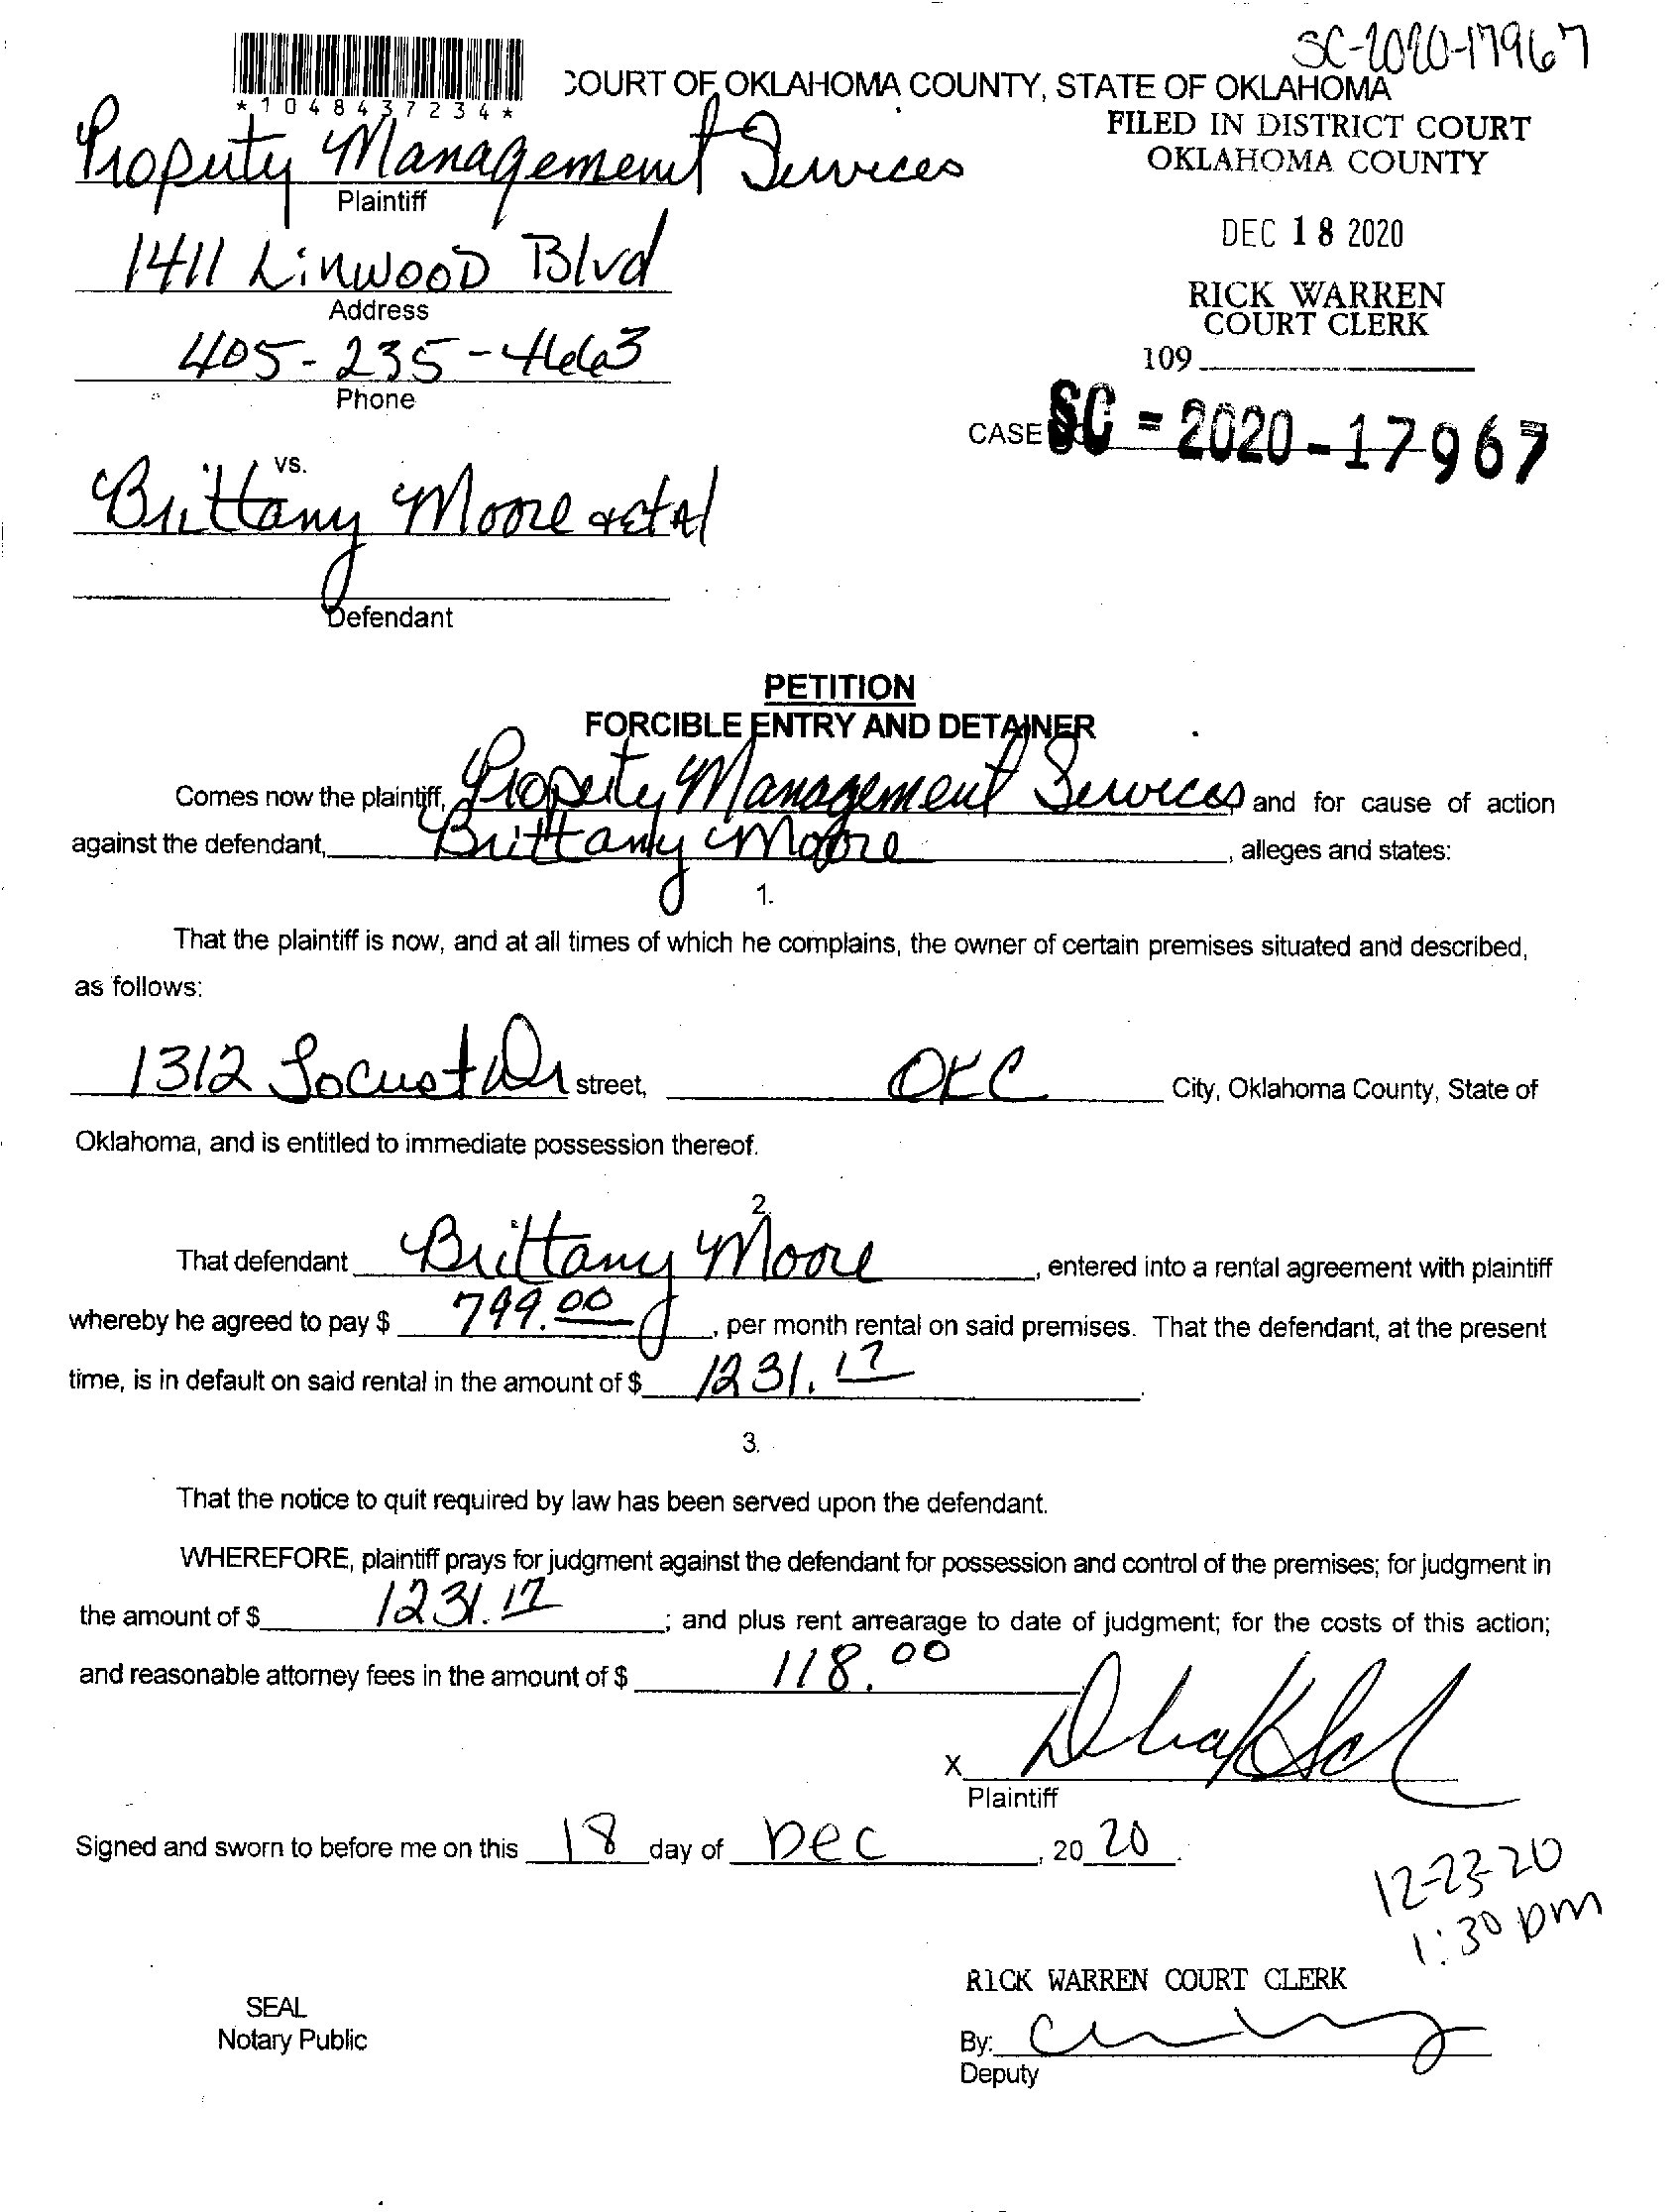 SC-2020-17967
COURT OF OKLAHOMA COUNTY, STATE OF OKLAHOMA
*1048437234*
FILED IN DISTRICT COURT
OKLAHOMA COUNTY
Property Management Services
Plaintiff
DEC 18 2020
1411 Linwood Blvd
Address
RICK WARREN
COURT CLERK
405-235-4663
Phone
109
CASE SC-2020-17967
vs.
Brittany Moore & et Al
Defendant
PETITION
FORCIBLE ENTRY AND DETAINER
Comes now the plaintiff, Property Management Services and for cause of action
against the defendant, Brittany Moore, alleges and states:
1.
That the plaintiff is now, and at all times of which he complains, the owner of certain premises situated and described,
as follows:
1312 Locust Dr street, OKC City, Oklahoma County, State of
Oklahoma, and is entitled to immediate possession thereof.
2.
That defendant Brittany Moore, entered into a rental agreement with plaintiff
whereby he agreed to pay $ 799.00, per month rental on said premises. That the defendant, at the present
time, is in default on said rental in the amount of $ 1231.17.
3.
That the notice to quit required by law has been served upon the defendant.
WHEREFORE, plaintiff prays for judgment against the defendant for possession and control of the premises; for judgment in
the amount of $ 1231.17; and plus rent arrearage to date of judgment; for the costs of this action;
and reasonable attorney fees in the amount of $ 118.00
X
Plaintiff
Signed and sworn to before me on this 18 day of Dec, 20 20.
12-23-20
1:30 pm
RICK WARREN COURT CLERK
SEAL
Notary Public
By:
Deputy